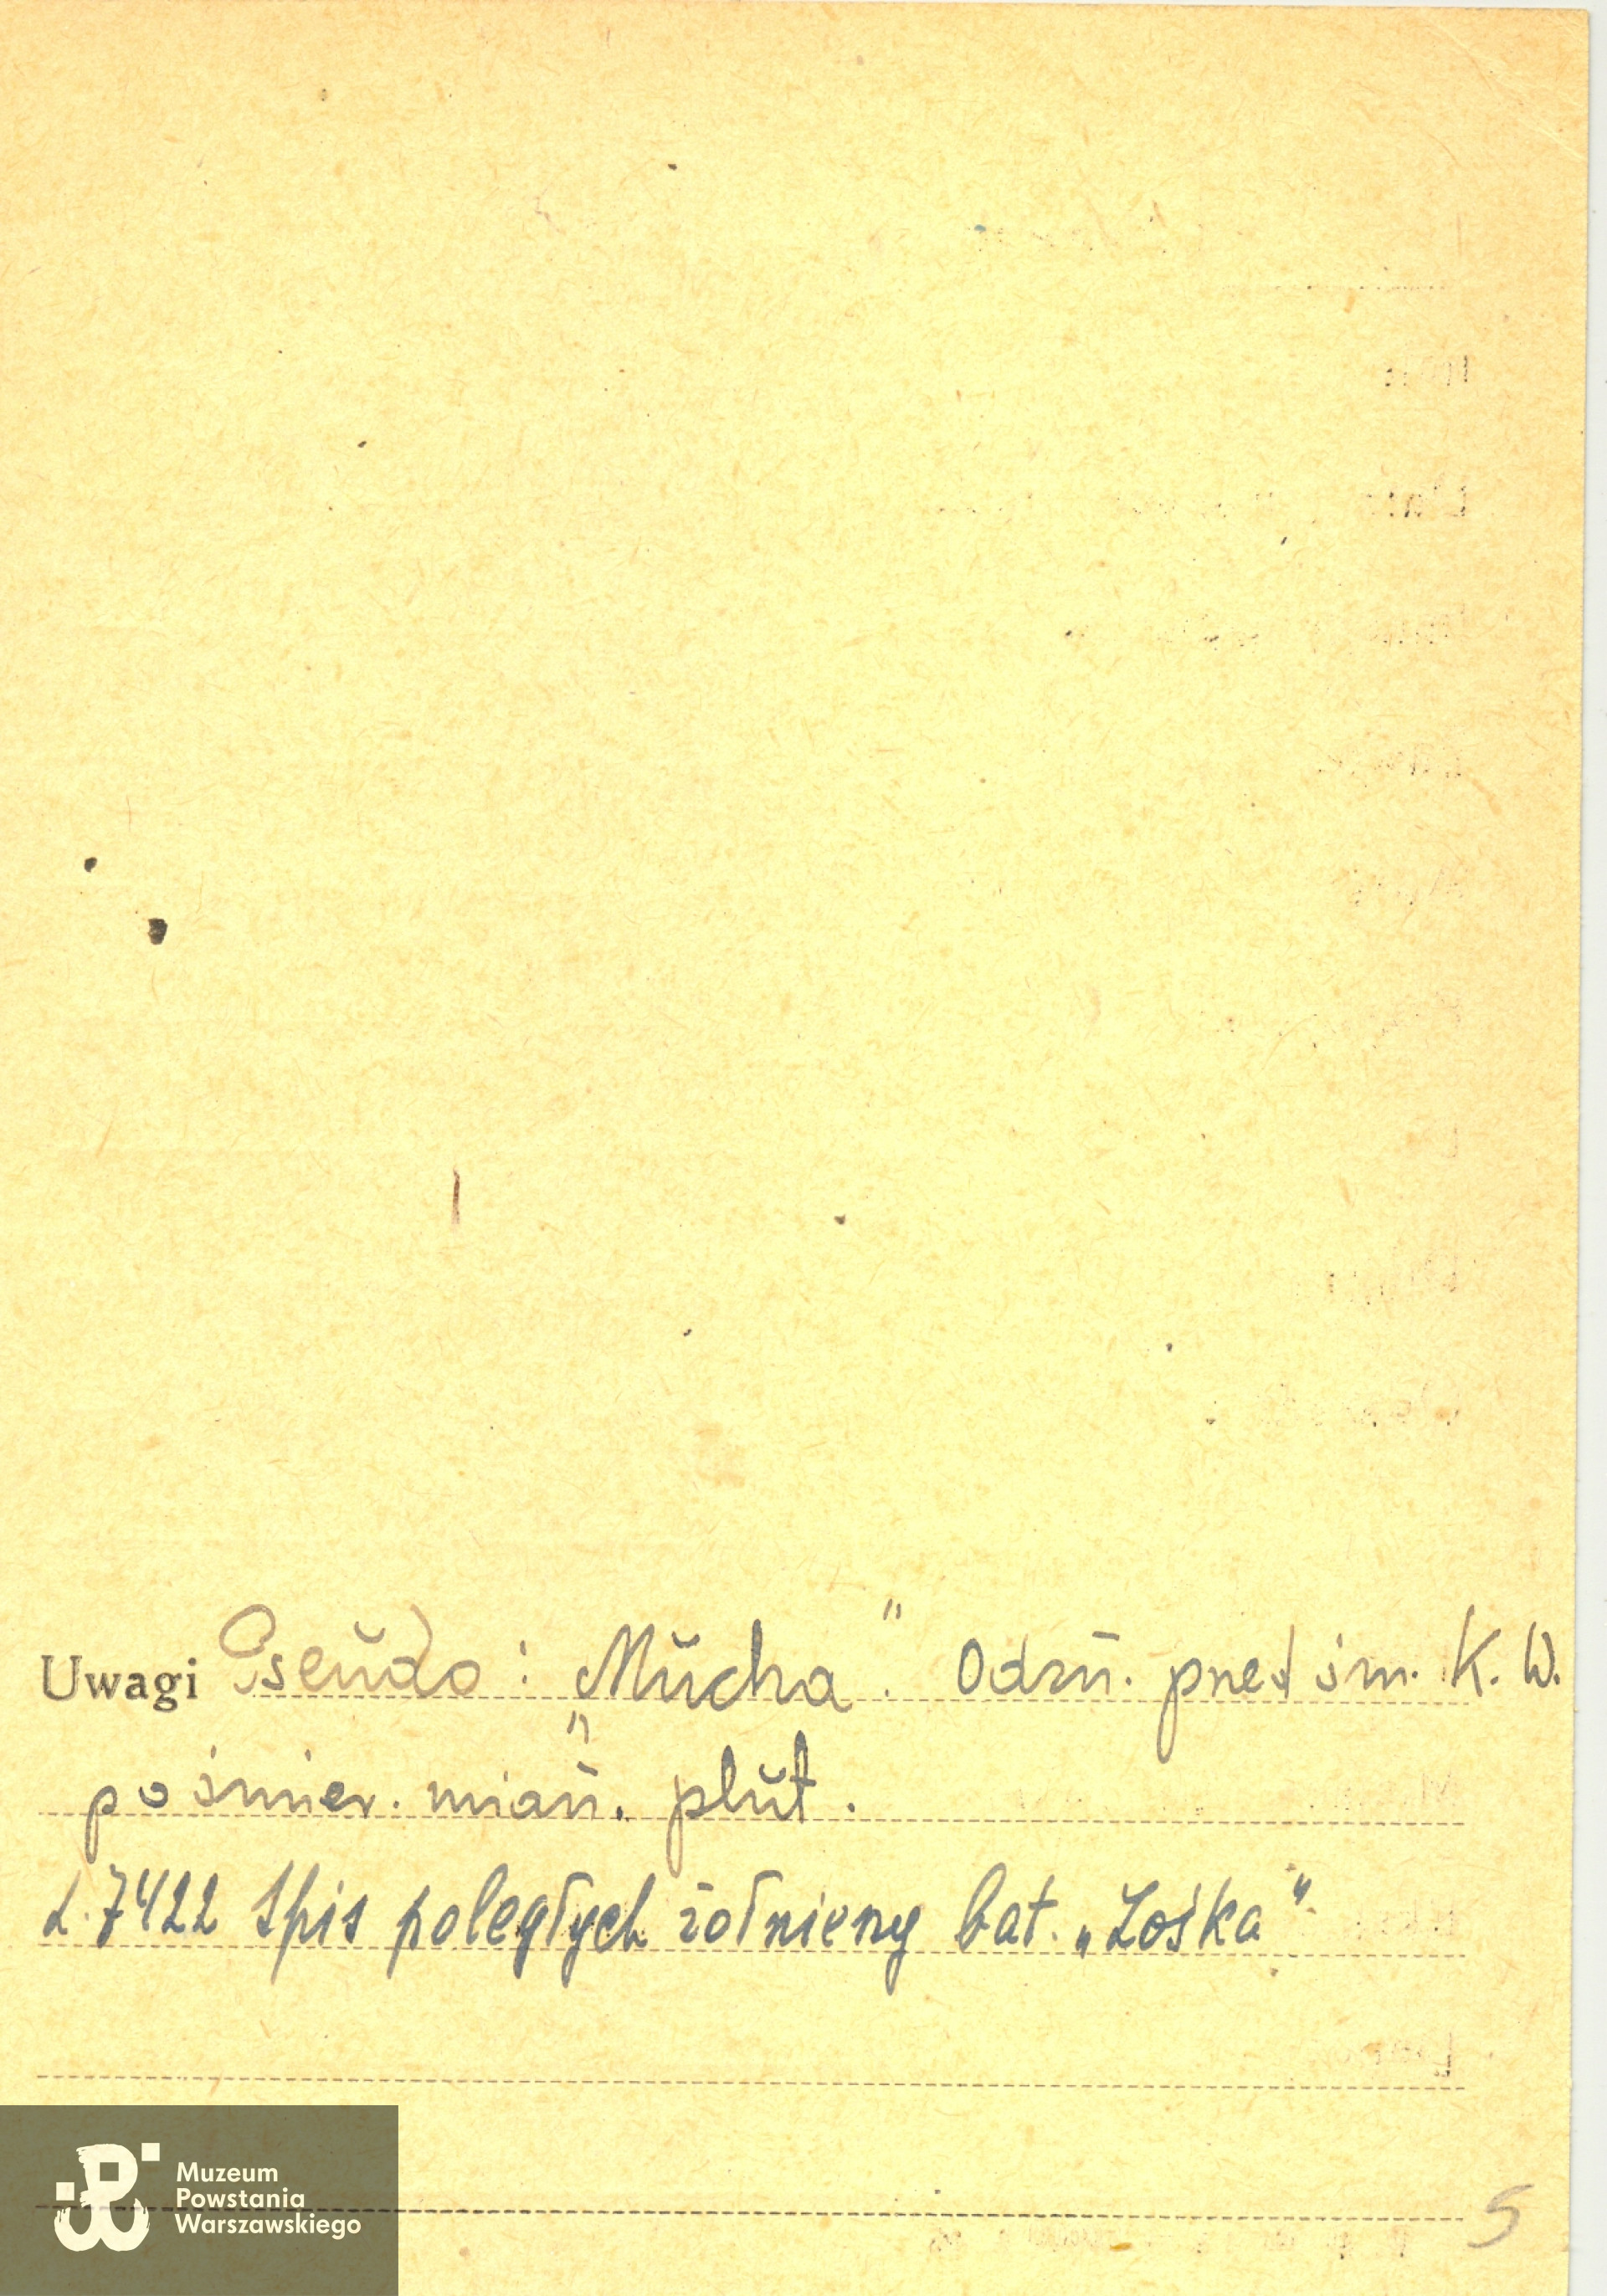 Uwagi Pseudo: „Mucha”. Odzn. przed śm. K. W.
pośmier. mian. plut.
L. 7422 Spis poległych żołnierzy bat. „Zośka”
Muzeum
Powstania
Warszawskiego
5